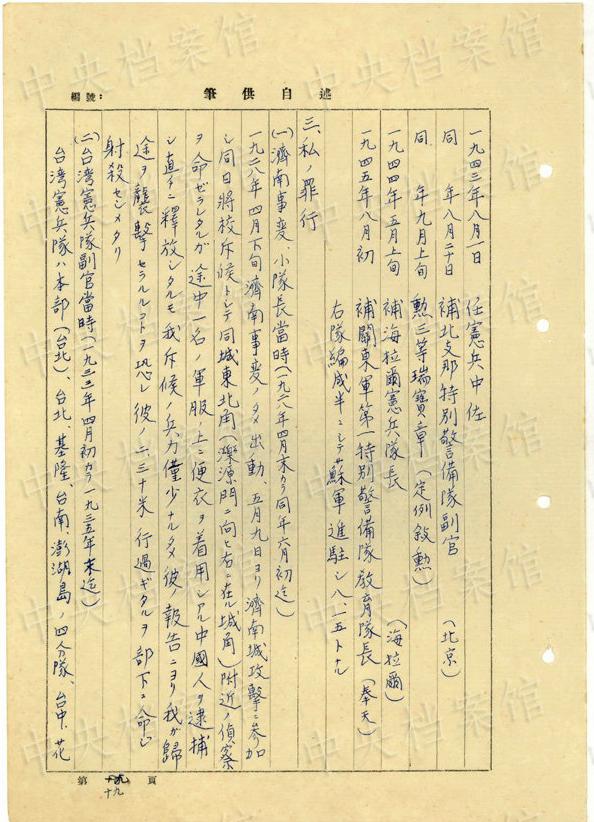 編號：
自述供筆
一九四三年八月一日　任憲兵中佐
同　年八月二十日　補北支那特別警備隊副官　（北京）
同　年九月上旬　勲三等瑞寶章（定例敘勲）
一九四四年五月上旬　補海拉爾憲兵隊長　（海拉爾）
一九四五年八月初　補關東軍第一特別警備隊教育隊長（奉天）
右隊編成半ニシテ蘇軍進駐シ八、一五トナル
三、私ノ罪行
(一)濟南事変、小隊長當時（一九二八年四月末カラ同年六月初迄）
一九二八年四月下旬濟南事変ノタメ出動、五月九日ヨリ濟南城攻撃ニ參加
シ同日將校斥候トシテ同城東北角（濼源門ニ向ヒ右ニ在ル城角）附近ノ偵察
ヲ命ゼラレタルガ途中一名ノ軍服ノ上ニ便衣ヲ着用シアル中國人ヲ逮捕
シ直チニ釋放シタルモ我斥候ノ兵力僅少ナルタメ彼ノ報告ニヨリ我ガ歸
途ヲ襲撃セラルルコトヲ恐レ彼ノ二、三十米行過ギタルヲ部下ニ命ジ
射殺センメタリ
(二)台湾憲兵隊副官當時（一九三三年四月初カラ一九三五年末迄）
台湾憲兵隊ハ本部（台北）、台北、基隆、台南、澎湖島ノ四分隊、台中、花
第　十九　頁
中央档案馆